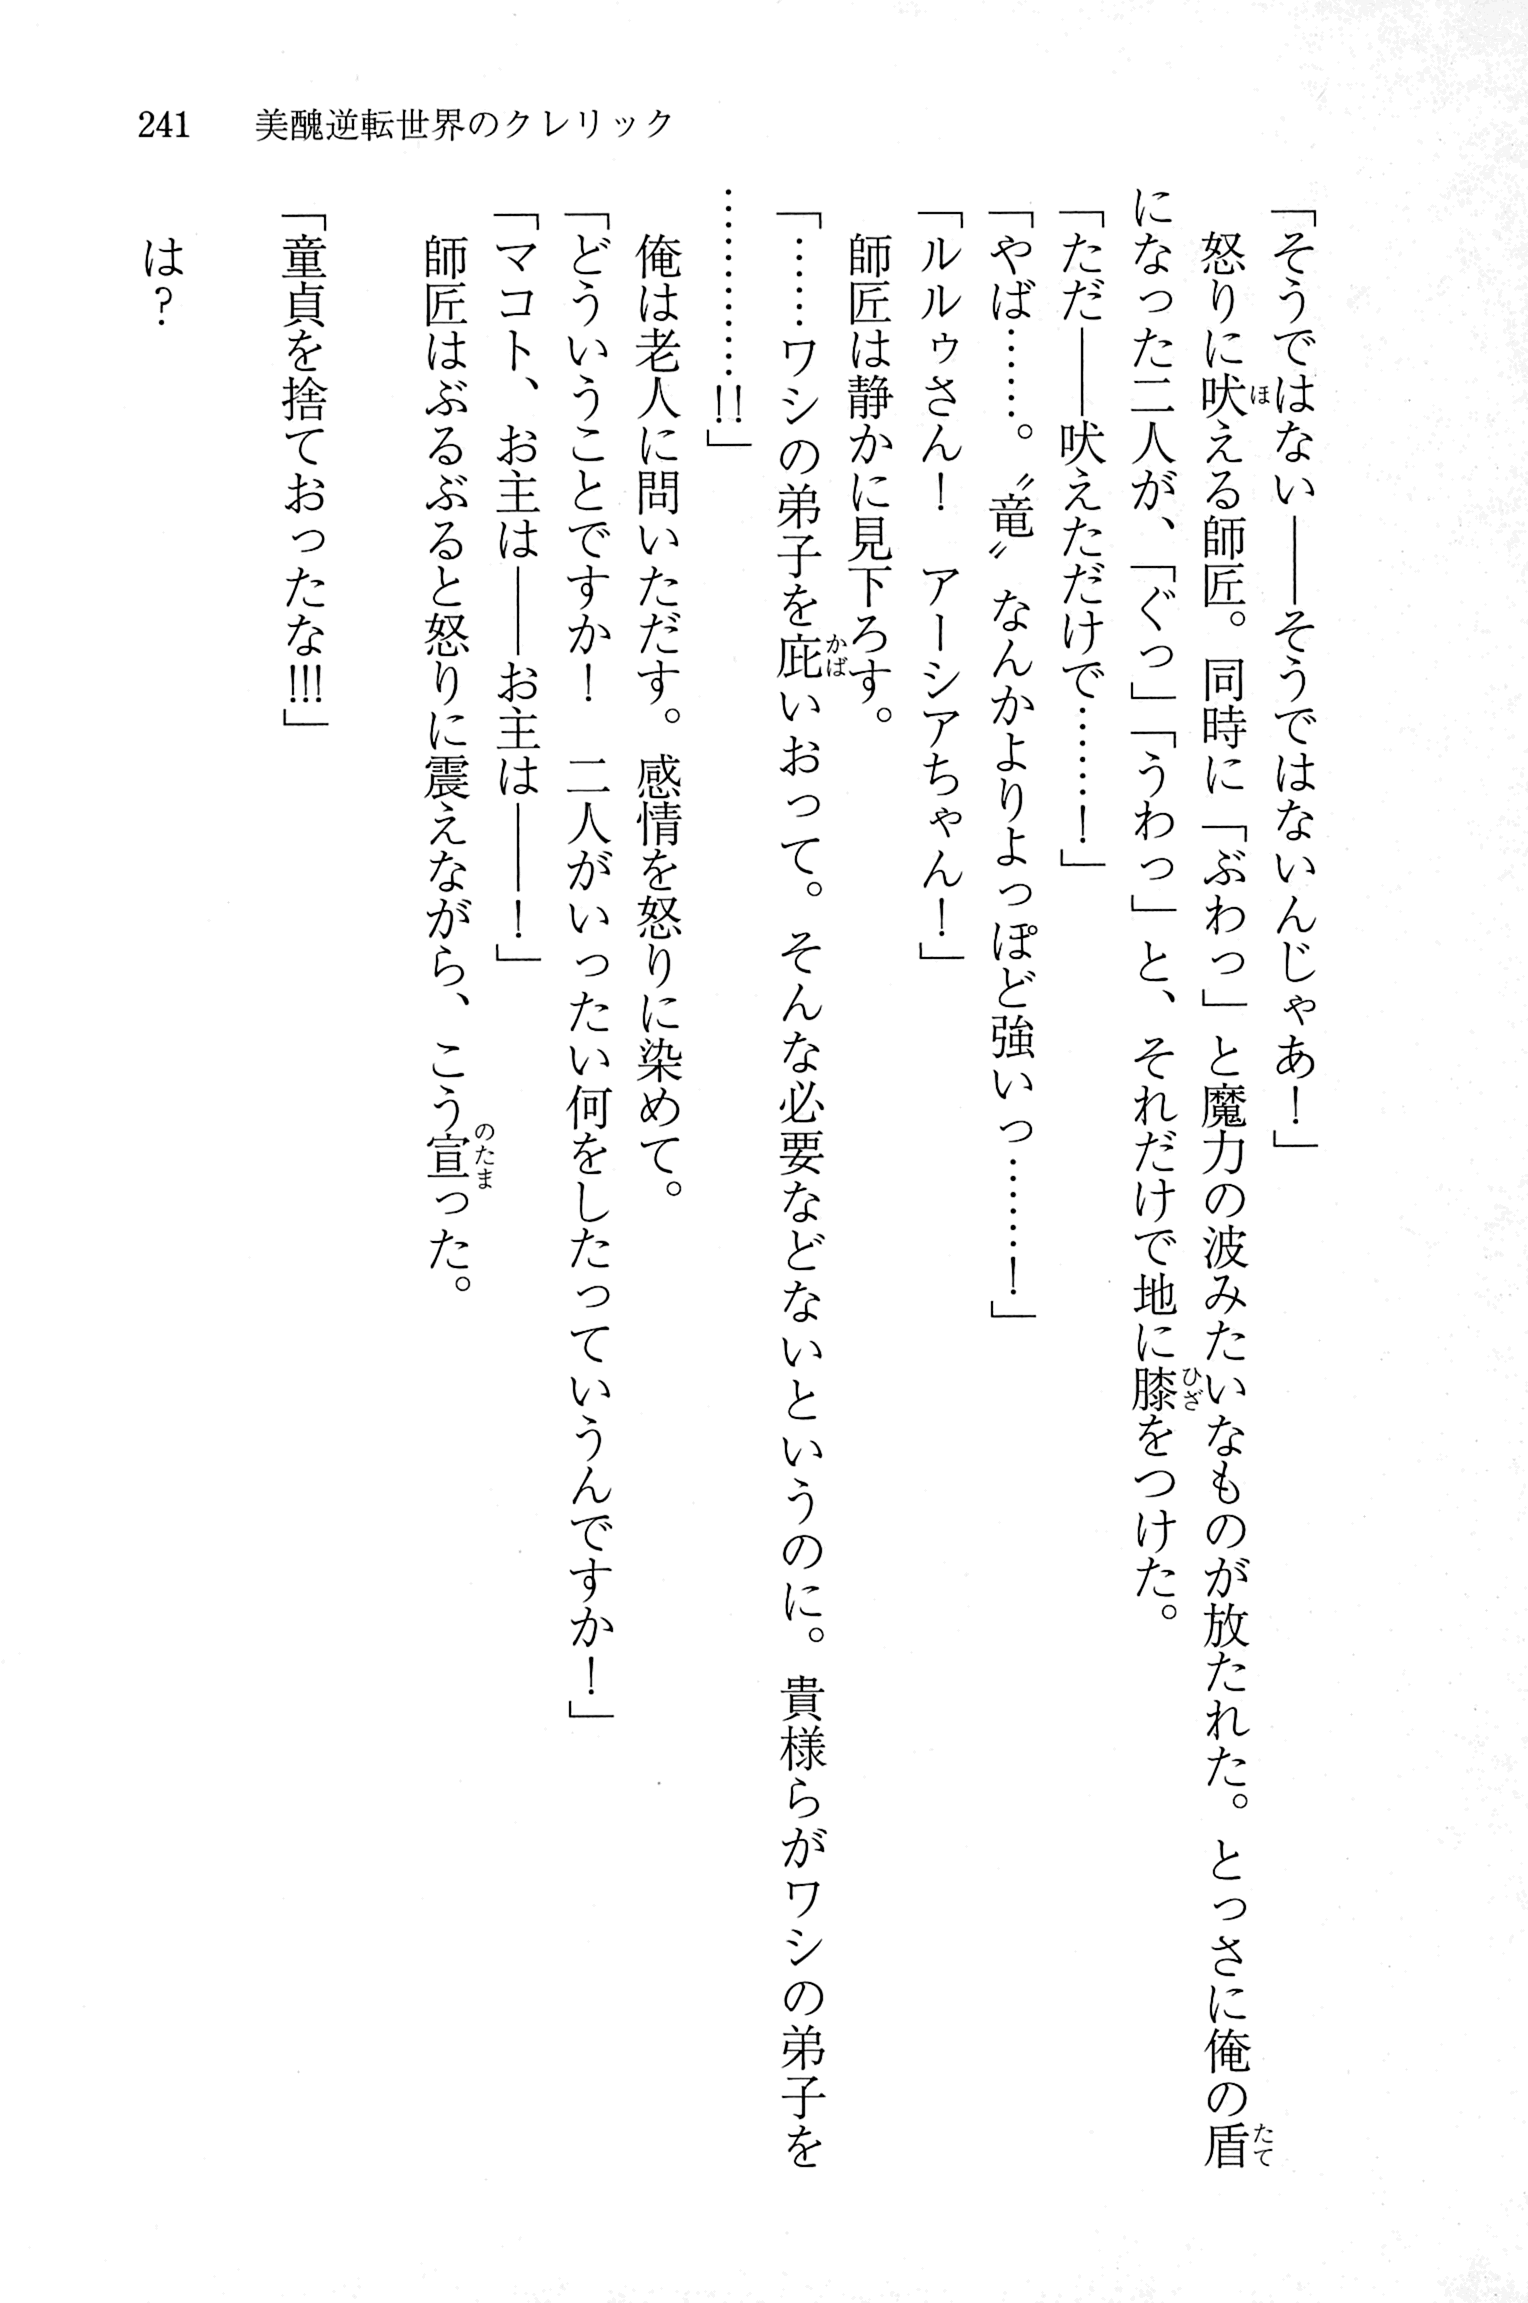 241 美醜逆転世界のクレリック
「そうではない――そうではないんじゃあ！」
　怒りに吠える師匠。同時に「ぶわっ」と魔力の波みたいなものが放たれた。とっさに俺の盾
になった二人が、「ぐっ」「うわっ」と、それだけで地に膝をつけた。
「ただ――吠えただけで……！」
「やば……。〝竜〟なんかよりよっぽど強いっ……！」
「ルルゥさん！　アーシアちゃん！」
　師匠は静かに見下ろす。
「……ワシの弟子を庇いおって。そんな必要などないというのに。貴様らがワシの弟子を
…………!!」
　俺は老人に問いただす。感情を怒りに染めて。
「どういうことですか！　二人がいったい何をしたっていうんですか！」
「マコト、お主は――お主は――！」
　師匠はぶるぶると怒りに震えながら、こう宣った。
「童貞を捨ておったな!!!」
　は？